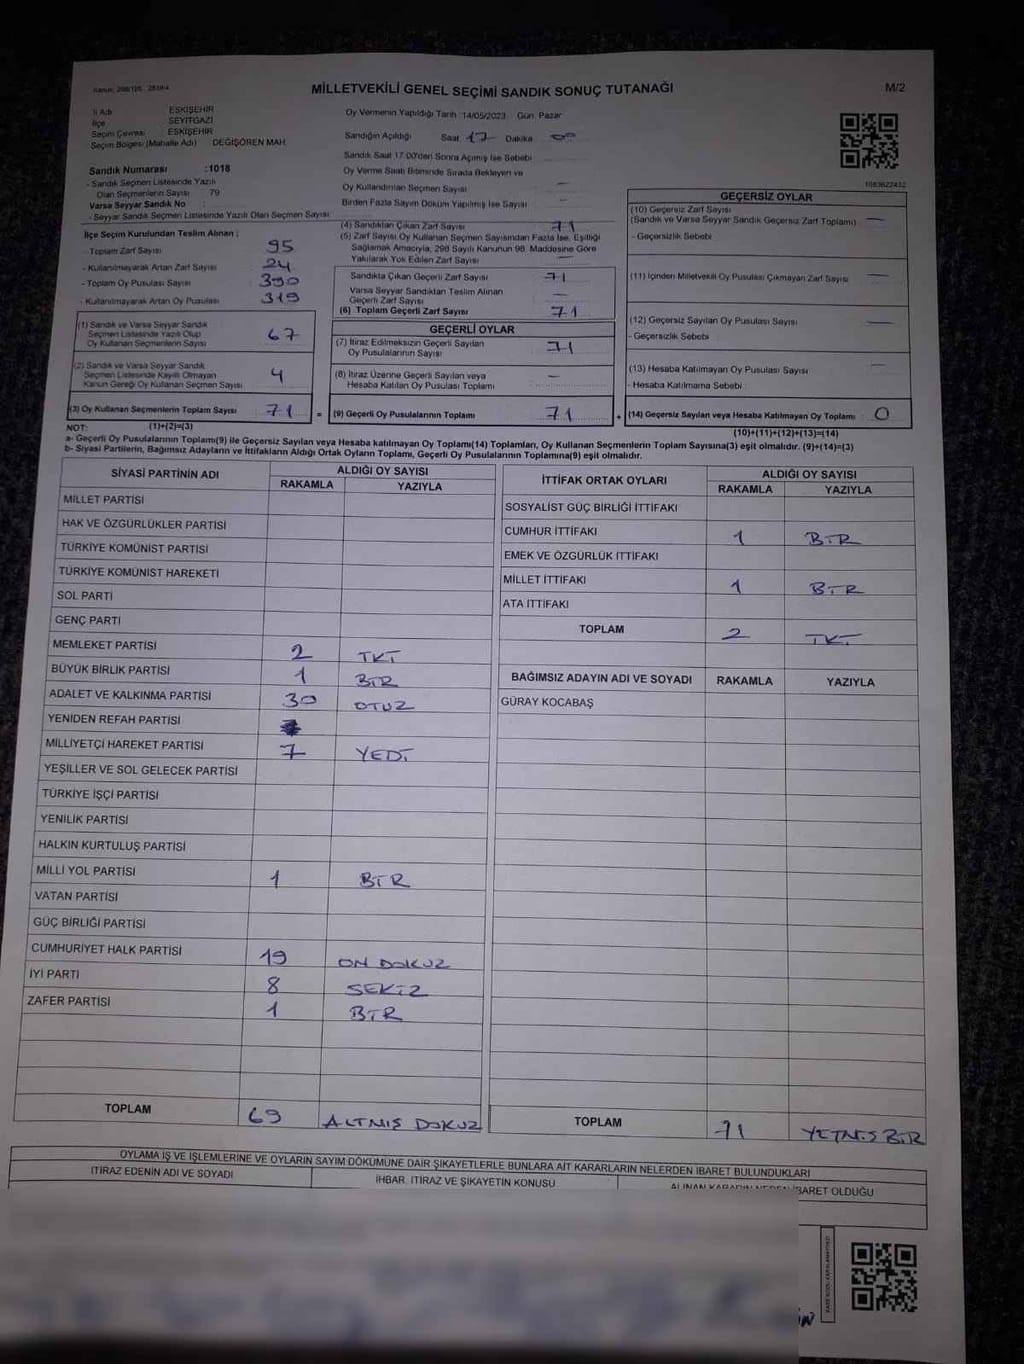 MİLLETVEKİLİ GENEL SEÇİMİ SANDIK SONUÇ TUTANAĞI
M/2
İl Adı : ESKİŞEHİR
İlçe : SEYİTGAZİ
Seçim Çevresi : ESKİŞEHİR
Seçim Bölgesi (Mahalle Adı) DEĞİŞÖREN MAH.
Oy Vermenin Yapıldığı Tarih :14/05/2023 Gün: Pazar
Sandığın Açıldığı Saat 17 Dakika 00
Sandık Saat 17.00'den Sonra Açılmış İse Sebebi
Oy Verme Saati Bitiminde Sırada Bekleyen ve
Oy Kullandırılan Seçmen Sayısı —
Birden Fazla Sayım Döküm Yapılmış İse Sayısı —
Sandık Numarası :1018
- Sandık Seçmen Listesinde Yazılı
Olan Seçmenlerin Sayısı 79
Varsa Seyyar Sandık No
- Seyyar Sandık Seçmen Listesinde Yazılı Olan Seçmen Sayısı:
İlçe Seçim Kurulundan Teslim Alınan :
- Toplam Zarf Sayısı 95
- Kullanılmayarak Artan Zarf Sayısı 24
- Toplam Oy Pusulası Sayısı 390
- Kullanılmayarak Artan Oy Pusulası 319
(1) Sandık ve Varsa Seyyar Sandık
Seçmen Listesinde Yazılı Olup
Oy Kullanan Seçmenlerin Sayısı 67
(2) Sandık ve Varsa Seyyar Sandık
Seçmen Listesinde Kayıtlı Olmayan
Kanun Gereği Oy Kullanan Seçmen Sayısı 4
(3) Oy Kullanan Seçmenlerin Toplam Sayısı 71 =
(1)+(2)=(3)
(4) Sandıktan Çıkan Zarf Sayısı 71
(5) Zarf Sayısı Oy Kullanan Seçmen Sayısından Fazla İse, Eşitliği
Sağlamak Amacıyla, 298 Sayılı Kanunun 98. Maddesine Göre
Yakılarak Yok Edilen Zarf Sayısı —
Sandıkta Çıkan Geçerli Zarf Sayısı 71
Varsa Seyyar Sandıktan Teslim Alınan
Geçerli Zarf Sayısı —
(6) Toplam Geçerli Zarf Sayısı 71
GEÇERLİ OYLAR
(7) İtiraz Edilmeksizin Geçerli Sayılan
Oy Pusulalarının Sayısı 71
(8) İtiraz Üzerine Geçerli Sayılan veya
Hesaba Katılan Oy Pusulası Toplamı —
(9) Geçerli Oy Pusulalarının Toplamı 71 +
1083622432
GEÇERSİZ OYLAR
(10) Geçersiz Zarf Sayısı
(Sandık ve Varsa Seyyar Sandık Geçersiz Zarf Toplamı) —
- Geçersizlik Sebebi
(11) İçinden Milletvekili Oy Pusulası Çıkmayan Zarf Sayısı —
(12) Geçersiz Sayılan Oy Pusulası Sayısı —
- Geçersizlik Sebebi
(13) Hesaba Katılmayan Oy Pusulası Sayısı —
- Hesaba Katılmama Sebebi :
(14) Geçersiz Sayılan veya Hesaba Katılmayan Oy Toplamı 0
(10)+(11)+(12)+(13)=(14)
NOT:
a- Geçerli Oy Pusulalarının Toplamı(9) ile Geçersiz Sayılan veya Hesaba katılmayan Oy Toplamı(14) Toplamları, Oy Kullanan Seçmenlerin Toplam Sayısına(3) eşit olmalıdır. (9)+(14)=(3)
b- Siyasi Partilerin, Bağımsız Adayların ve İttifakların Aldığı Ortak Oyların Toplamı, Geçerli Oy Pusulalarının Toplamına(9) eşit olmalıdır.
SİYASİ PARTİNİN ADI ALDIĞI OY SAYISI
RAKAMLA YAZIYLA
MİLLET PARTİSİ
HAK VE ÖZGÜRLÜKLER PARTİSİ
TÜRKİYE KOMÜNİST PARTİSİ
TÜRKİYE KOMÜNİST HAREKETİ
SOL PARTİ
GENÇ PARTİ
MEMLEKET PARTİSİ 2 İKİ
BÜYÜK BİRLİK PARTİSİ 1 BİR
ADALET VE KALKINMA PARTİSİ 30 OTUZ
YENİDEN REFAH PARTİSİ
MİLLİYETÇİ HAREKET PARTİSİ 7 YEDİ
YEŞİLLER VE SOL GELECEK PARTİSİ
TÜRKİYE İŞÇİ PARTİSİ
YENİLİK PARTİSİ
HALKIN KURTULUŞ PARTİSİ
MİLLİ YOL PARTİSİ 1 BİR
VATAN PARTİSİ
GÜÇ BİRLİĞİ PARTİSİ
CUMHURİYET HALK PARTİSİ 19 ON DOKUZ
İYİ PARTİ 8 SEKİZ
ZAFER PARTİSİ 1 BİR
TOPLAM 69 ALTMIŞ DOKUZ
İTTİFAK ORTAK OYLARI ALDIĞI OY SAYISI
RAKAMLA YAZIYLA
SOSYALİST GÜÇ BİRLİĞİ İTTİFAKI
CUMHUR İTTİFAKI 1 BİR
EMEK VE ÖZGÜRLÜK İTTİFAKI
MİLLET İTTİFAKI 1 BİR
ATA İTTİFAKI
TOPLAM 2 İKİ
BAĞIMSIZ ADAYIN ADI VE SOYADI RAKAMLA YAZIYLA
GÜRAY KOCABAŞ
TOPLAM 71 YETMİŞ BİR
OYLAMA İŞ VE İŞLEMLERİNE VE OYLARIN SAYIM DÖKÜMÜNE DAİR ŞİKAYETLERLE BUNLARA AİT KARARLARIN NELERDEN İBARET BULUNDUKLARI
İTİRAZ EDENİN ADI VE SOYADI
İHBAR, İTİRAZ VE ŞİKAYETİN KONUSU
ALINAN KARARIN NEDEN İBARET OLDUĞU